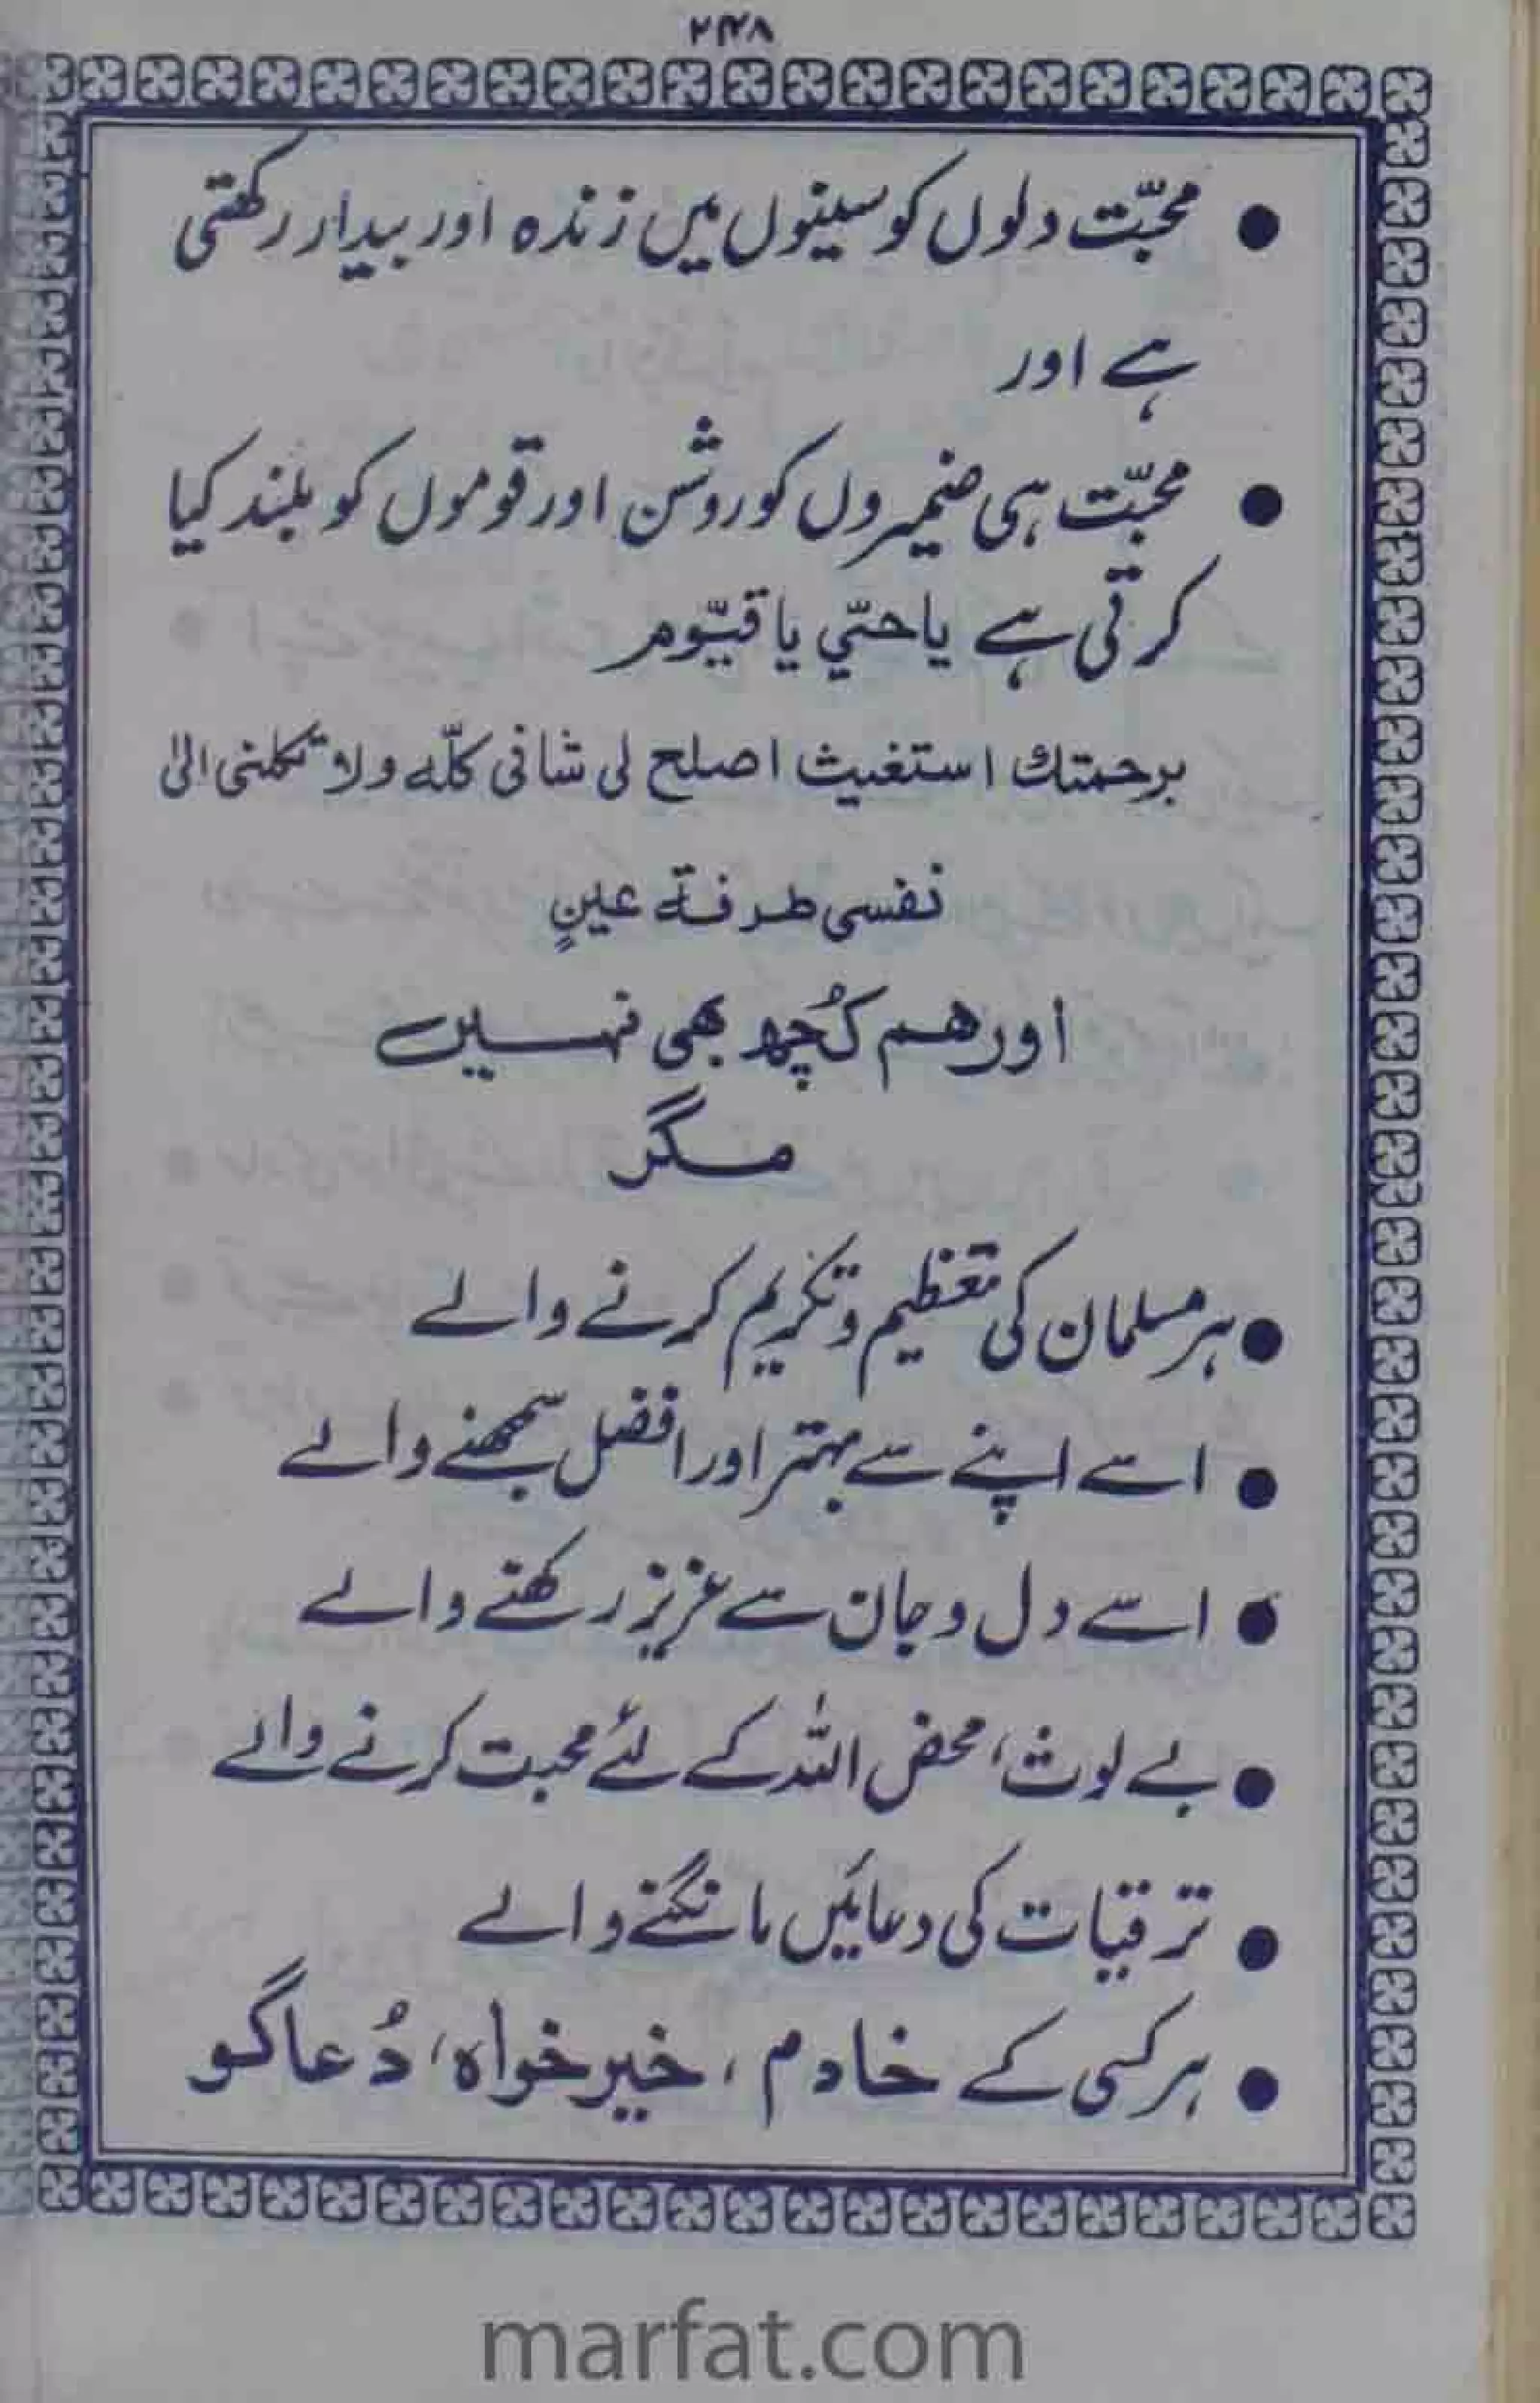 ۲۴۸
● محبّت دلوں کو سینوں میں زندہ اور بیدار رکھتی
ہے اور
● محبّت ہی ضمیروں کو روشن اور قوموں کو بلند کیا
کرتی ہے یا حیّ یا قیّوم
برحمتك استغیث اصلح لی شانی کلّه ولا تکلنی الیٰ
نفسی طرفة عینٍ
اور هم کُچھ بھی نہیں
مگر
● ہر مسلمان کی تعظیم و تکریم کرنے والے
● اسے اپنے سے بہتر اور افضل سمجھنے والے
● اسے دل و جان سے عزیز رکھنے والے
● بے لوث، محض اللہ کے لئے محبت کرنے والے
● ترقیات کی دعائیں مانگنے والے
● ہر کسی کے خادم، خیرخواہ، دُعاگو
marfat.com